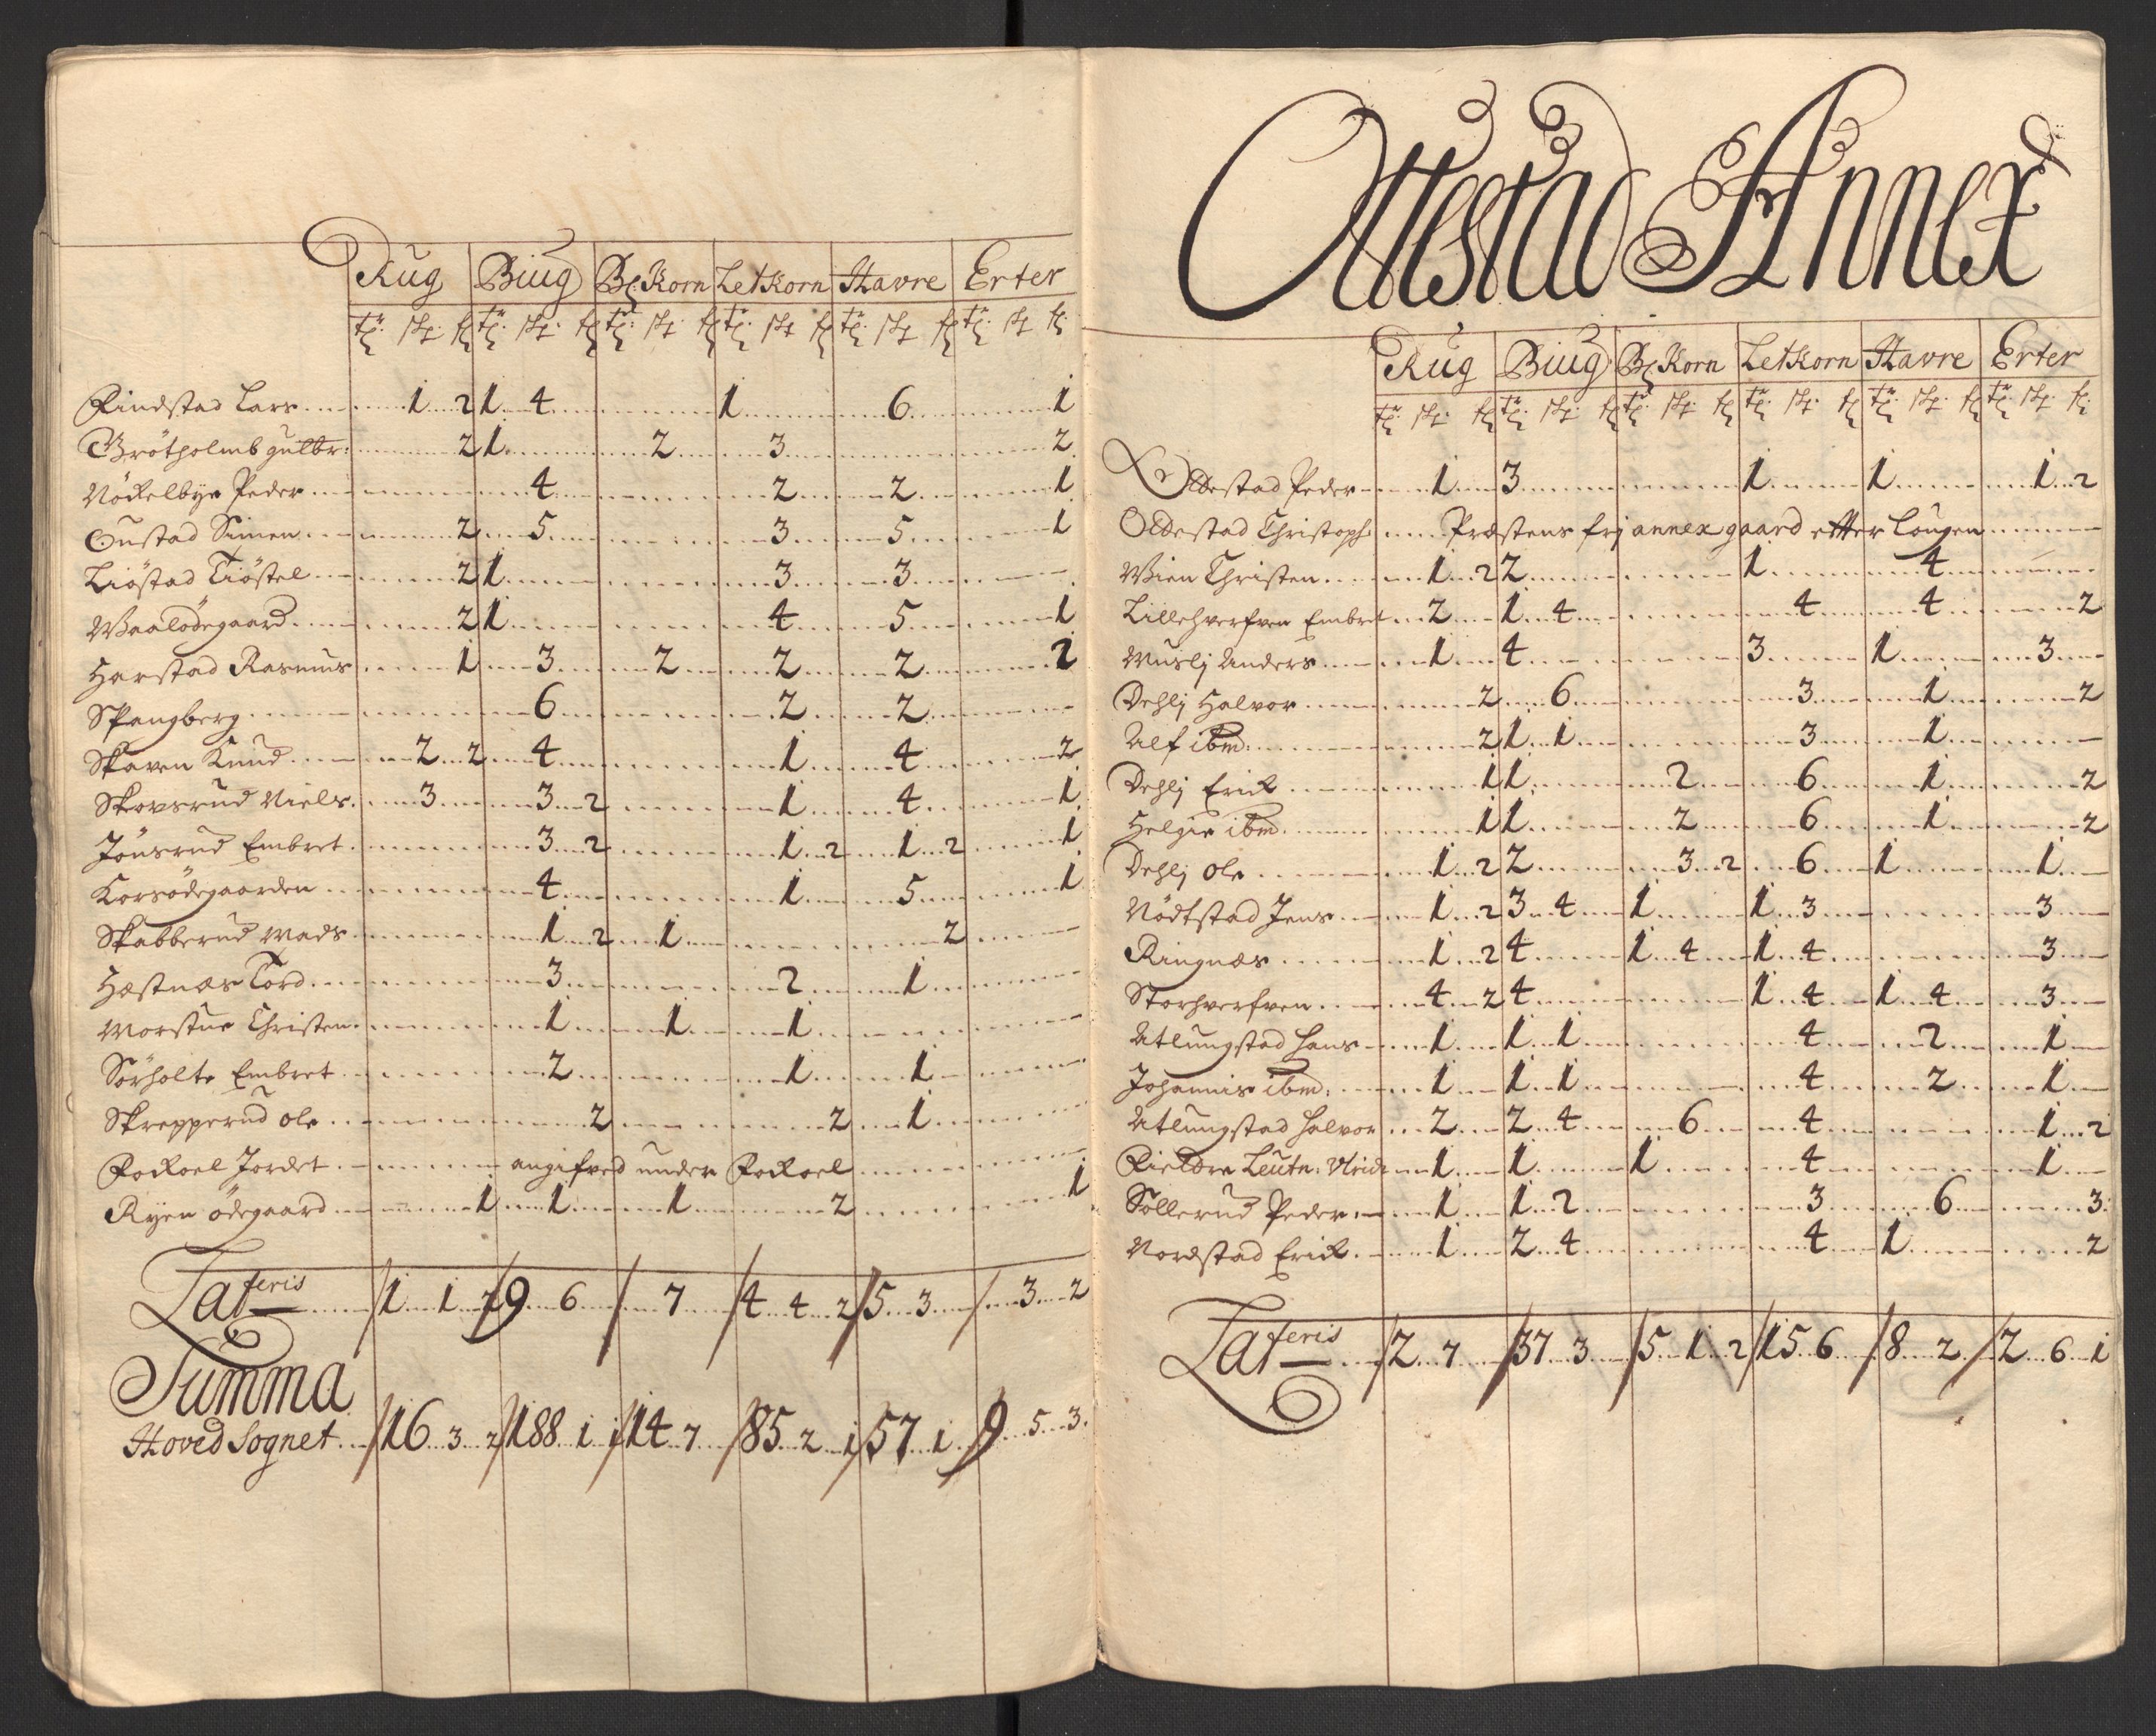 Rug Biug Bl: Korn Letkorn Havre Erter
tr. skp. fl tr. skp. fl tr. skp. fl tr. skp. fl tr. skp. fl tr. skp. fl
Rindstad Lars 1 2 1 4 1 6 1
Brötholmb gulbr: 2 1 2 3 2
Nöckelbye Peder 4 2 2 1
Gustad Simen 2 5 3 5 1
Liöstad Tiöstel 2 1 3 3
Waalödegaard 2 1 4 5 1
Harstad Rasmus 1 3 2 2 2 2
Spangberg 6 2 2
Skaven Knud 2 2 4 1 4 2
Skovsrud Niels 3 3 2 1 4 1
Jönsrud Embret 3 2 1 2 1 2 1
Korsödegaarden 4 1 5 1
Skabberud Mads 1 2 1 2
Hæstnæs Tord 3 2 1
Morstue Christen 1 1 1
Sörholte Embret 2 1 1
Skrepperud ole 2 2 1
Rockoel Jordet angifved under Rockoel
Ryen ödegaard 1 1 1 2 1
Lateris 1 1 2 9 6 7 4 4 2 5 3 3 2
Summa
Hoved Sognet 16 3 2 188 1 1 14 7 85 2 1 57 1 9 5 3
Ottestad Annex
Rug Biug Bl Korn Letkorn Havre Erter
tr. skp. fl tr. skp. fl tr. skp. fl tr. skp. fl tr. skp. fl tr. skp. fl
Oldestad Peder 1 3 1 1 1 2
Oldestad Christoph: Præstens frj annex gaard efter Lougen
Wien Christen 1 2 2 1 4
Lillehverfven Embret 2 1 4 4 4 2
Muslj Anders 1 4 3 1 3
Dehlj Halvor 2 6 3 1 2
Alf ibm: 2 1 1 3 1
Dehlj Erick 1 1 2 6 1 2
Helgie ibm 1 1 2 6 1 2
Dehlj ole 1 2 2 3 2 6 1 1
Nödtstad Jens 1 2 3 4 1 1 3 3
Ringnæs 1 2 4 1 4 1 4 3
Storhverfven 4 2 4 1 4 1 4 3
Atlungstad Hans 1 1 1 4 2 1
Johannis ibm: 1 1 1 4 2 1
Atlungstad Halvor 2 2 4 6 4 1 2
Fieldre Leutn: Ulrich 1 1 1 4 1
Sollerud Peder 1 1 2 3 6 3
Nordstad Erick 1 2 4 4 1 2
Lateris 2 7 37 3 5 1 2 15 6 8 2 2 6 1